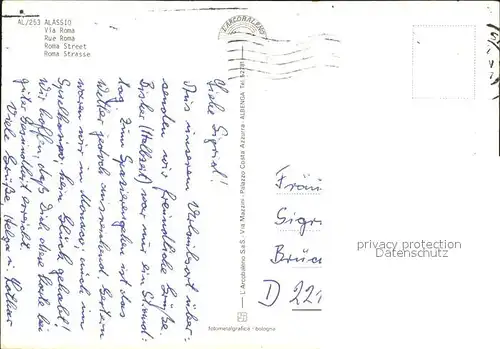 AL/253 ALASSIO
Via Roma
Rue Roma
Roma Street
Roma Strasse
L'ARCOBALENO
Liebe Sigrid!
Aus unserem Urlaubsort über-
senden wir freundliche Grüße.
Bisher (Halbzeit) war nur ein Strand-
tag. Zum Spazierengehen ist das
Wetter jedoch ausreichend. Gestern
waren wir in Monaco, auch im
Spielkasino, kein Glück gehabt!
Wir hoffen, daß Dich diese Karte bei
guter Gesundheit erreicht.
Viele Grüße, Helga u. Lothar
L'Arcobaleno S.a.S. Via Mazzini - Palazzo Costa Azzurra - ALBENGA Tel.
fotometalgrafica - bologna
Fräu
Sigr
Brüc
D 221
privacy protection
Datenschutz